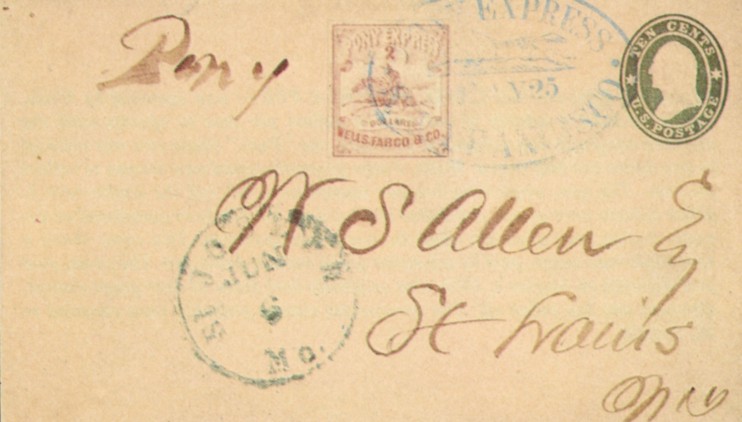 Pony
PONY EXPRESS
2
DOLLARS
WELLS. FARGO & CO.
EXPRESS
25
TEN CENTS
U.S. POSTAGE
W S Allen Esq
St Louis
Mo
ST JOSEPH
JUN
6
MO.